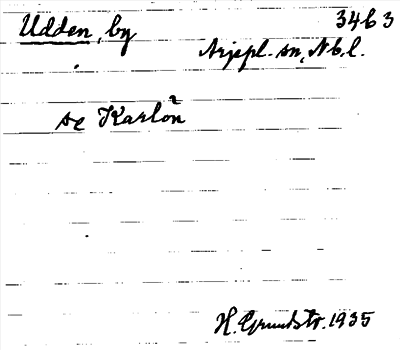 Udden, by 3463
Arjepl. sn, Nb. l.
se Karlön
H. Grundstr. 1935